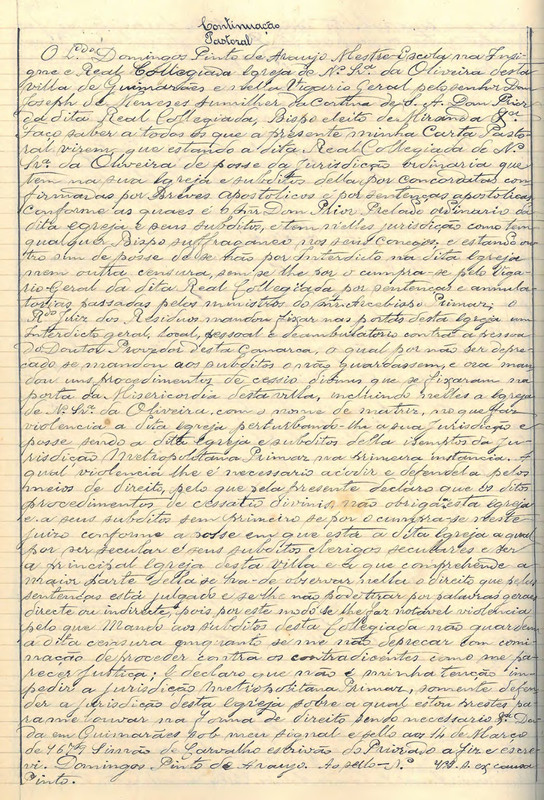 Continuação
Pastoral
O L.do Domingos Pinto de Araujo Mestre-Escola na Insi-
gne e Real Collegiada Igreja de N.ª Sr.ª da Oliveira desta
villa de Guimarães e nella Vigario Geral pelo senhor Dom
Joseph de Menezes Sumilher da Cortina de S. A. Dom Prior
da dita Real Collegiada, Bispo eleito de Miranda &.ª
Faço saber a todos os que a presente minha Carta Pasto-
ral virem, que estando a dita Real Collegiada de N.ª
Sr.ª da Oliveira de posse da Jurisdicção ordinaria que
tem na sua Igreja e subditos della por concordatas con-
firmadas por Breves apostolicos e por sentenças apostolicas
conforme as quaes é o Snr Dom Prior Prelado ordinario da
dita egreja e seus subditos, e tem nelles jurisdicção como tem
qualquer Bispo suffraganeo nos seus ; e estando ou-
tro sim de posse de se não por Interdicto na dita Igreja
nem outra censura, sem se lhe por o cumpra-se pelo Viga-
rio Geral da dita Real Collegiada por sentenças e annula-
torias passadas pelos ministros do Arcebispo Primaz; o
R.do Juiz dos Residuos mandou fixar nas portas desta Igreja um
Interdicto geral, local, pessoal e deambulatorio contra a pessoa
do Doutor Provedor desta Comarca, o qual por não ser depre-
cado se mandou aos subditos o não guardassem, e ora man-
dou uns procedimentos de cessio divinis que se fixaram na
porta da Misericordia desta villa, incluindo nelles a Igreja
de N.ª Sr.ª da Oliveira, com o nome de matriz, no que faz
violencia a dita Igreja perturbando-lhe a sua Jurisdicção e
posse sendo a dita Igreja e subditos della isemptos da Ju-
risdicção Metropolitana Primaz na primeira instancia. A
qual violencia lhe é necessario acudir e defendela pelos
meios de direito, pelo que pela presente declaro que os ditos
procedimentos de cessatio divinis não obrigão esta Igreja
e a seus subditos sem primeiro se por o cumpra-se neste
juizo conforme a posse em que está a dita Igreja a qual
por ser secular e seus subditos clerigos seculares e ser
a principal Igreja desta villa e a que comprehende a
maior parte della se ha-de observar nella o direito que pelas
sentenças está julgado e se lhe não pode tirar por palavras geraes
directe ou indirecte, pois por este modo se lhe faz notavel violencia
pelo que Mando aos subditos desta Collegiada não guardem
a dita censura emquanto se me não deprecar com comi-
nação de proceder contra os contradicentes como me pa-
recer Justiça; e declaro que não é minha tenção im-
pedir a jurisdicção metropolitana Primaz, somente defen-
der a jurisdicção desta Igreja sobre a qual estou prestes pa-
ra me louvar na forma de direito sendo necessario &.ª Da-
da em Guimarães sob meu signal e sello aos 14 de Março
de Simão de Carvalho escrivão do Priorado a fiz e escre-
vi. Domingos Pinto de Araujo. Ao sello - N.º ex causa
Pinto.